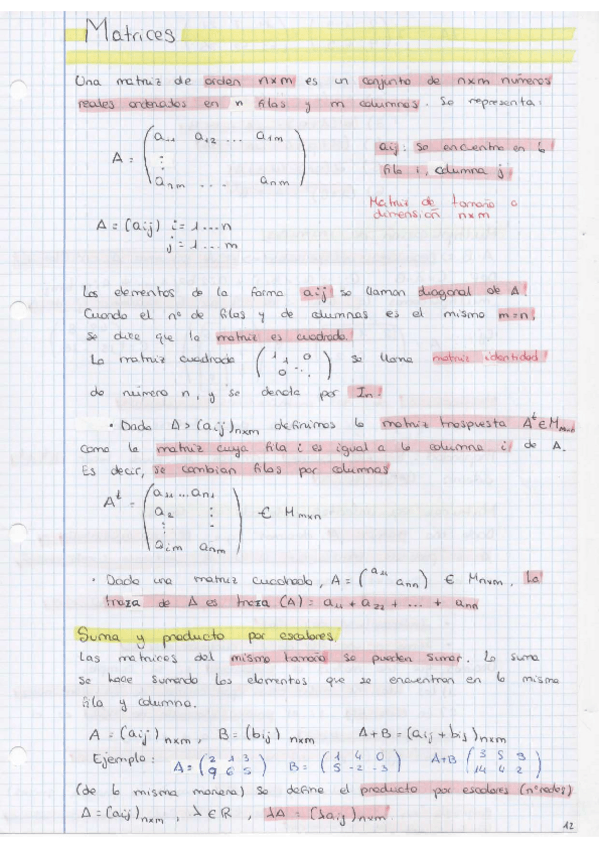 Matrices
Una matriz de orden n×m es un conjunto de n×m números
reales ordenados en n filas y m columnas. Se representa:
A = (a₁₁ a₁₂ ... a₁m
⋮
anm ... anm)
aij: Se encuentra en la
fila i, columna j
Matriz de tamaño o
dimensión n×m
A = (aij) i = 1 ... n
j = 1 ... m
Los elementos de la forma aij se llaman diagonal de A.
Cuando el nº de filas y de columnas es el mismo m=n,
se dice que la matriz es cuadrada.
La matriz cuadrada (1 1 0
0 ⋱) se llama matriz identidad
de número n, y se denota por In.
• Dada A = (aij)n×m definimos la matriz traspuesta Aᵗ ∈ Mm×n
como la matriz cuya fila i es igual a la columna i de A.
Es decir, se cambian filas por columnas
Aᵗ = (a₁₁ ... an₁
a₂ ⋮
⋮
a₁m anm) ∈ Mm×n
• Dada una matriz cuadrada, A = (a₁₁ ann) ∈ Mn×m. La
traza de A es traza (A) = a₁₁ + a₂₂ + ... + ann
Suma y producto por escalares.
Las matrices del mismo tamaño se pueden sumar. La suma
se hace sumando los elementos que se encuentran en la misma
fila y columna.
A = (aij)n×m, B = (bij)n×m A+B = (aij + bij)n×m
Ejemplo: A = (2 1 3
9 6 5) B = (1 4 0
5 -2 -3) A+B (3 5 3
14 4 2)
(de la misma manera) Se define el producto por escalares (nº reales)
A = (aij)n×m, λ ∈ R, λA = (λaij)n×m.
12